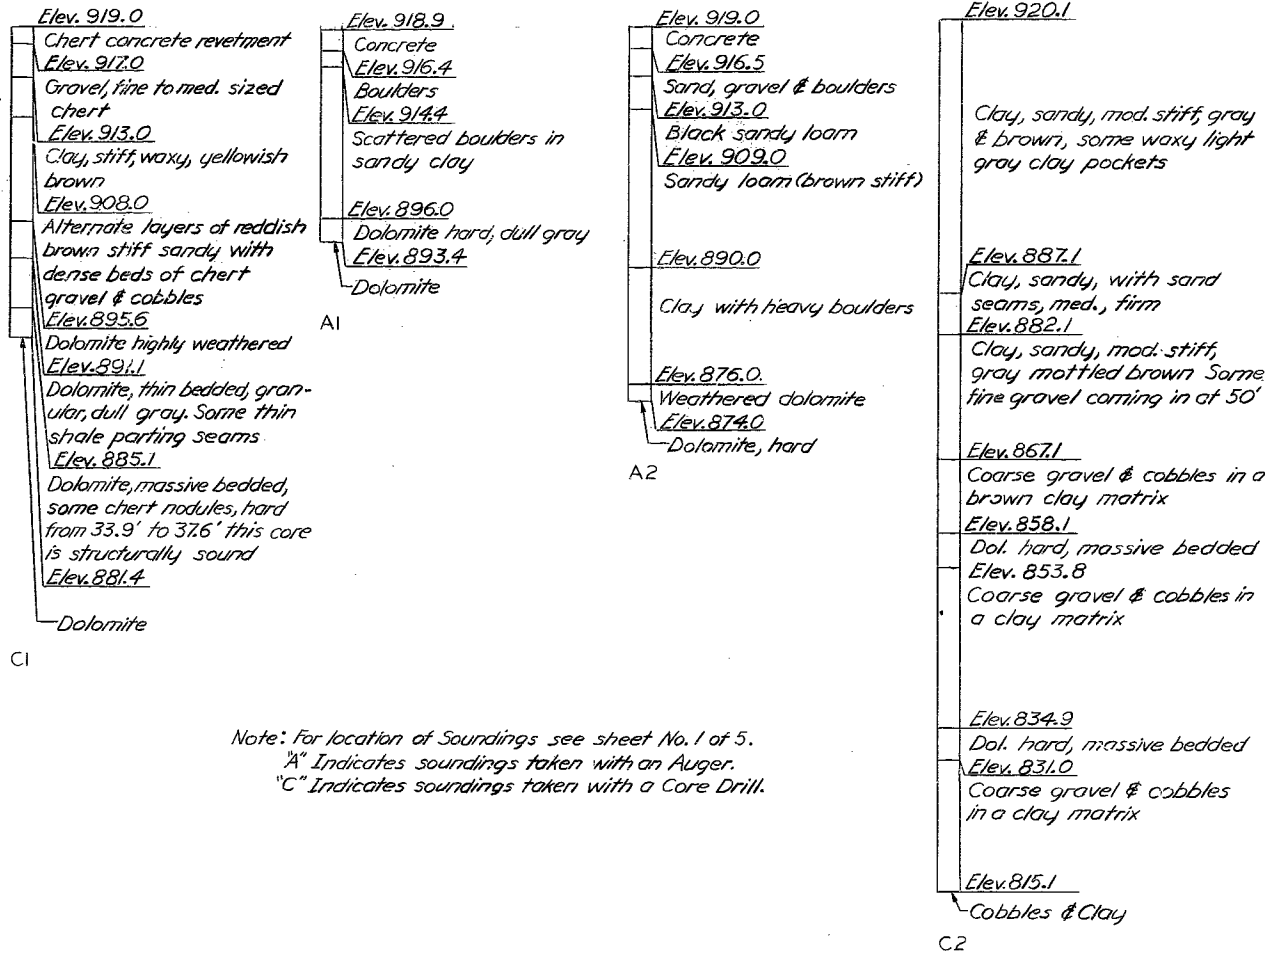 Elev. 919.0
Chert concrete revetment
Elev. 917.0
Gravel, fine to med. sized
chert
Elev. 913.0
Clay, stiff, waxy, yellowish
brown
Elev. 908.0
Alternate layers of reddish
brown stiff sandy with
dense beds of chert
gravel & cobbles
Elev. 895.6
Dolomite highly weathered
Elev. 891.1
Dolomite, thin bedded, gran-
ular, dull gray. Some thin
shale parting seams
Elev. 885.1
Dolomite, massive bedded,
some chert nodules, hard
from 33.9' to 37.6' this core
is structurally sound
Elev. 881.4
Dolomite
C1
Elev. 918.9
Concrete
Elev. 916.4
Boulders
Elev. 914.4
Scattered boulders in
sandy clay
Elev. 896.0
Dolomite hard, dull gray
Elev. 893.4
Dolomite
A1
Elev. 919.0
Concrete
Elev. 916.5
Sand, gravel & boulders
Elev. 913.0
Black sandy loam
Elev. 909.0
Sandy loam (brown stiff)
Elev. 890.0
Clay with heavy boulders
Elev. 876.0.
Weathered dolomite
Elev. 874.0
Dolomite, hard
A2
Elev. 920.1
Clay, sandy, mod. stiff, gray
& brown, some waxy light
gray clay pockets
Elev. 887.1
Clay, sandy, with sand
seams, med., firm
Elev. 882.1
Clay, sandy, mod. stiff,
gray mottled brown Some
fine gravel coming in at 50'
Elev. 867.1
Coarse gravel & cobbles in a
brown clay matrix
Elev. 858.1
Dol. hard, massive bedded
Elev. 853.8
Coarse gravel & cobbles in
a clay matrix
Elev. 834.9
Dol. hard, massive bedded
Elev. 831.0
Coarse gravel & cobbles
in a clay matrix
Elev. 815.1
Cobbles & Clay
C2
Note: For location of Soundings see sheet No. 1 of 5.
"A" Indicates soundings taken with an Auger.
"C" Indicates soundings taken with a Core Drill.